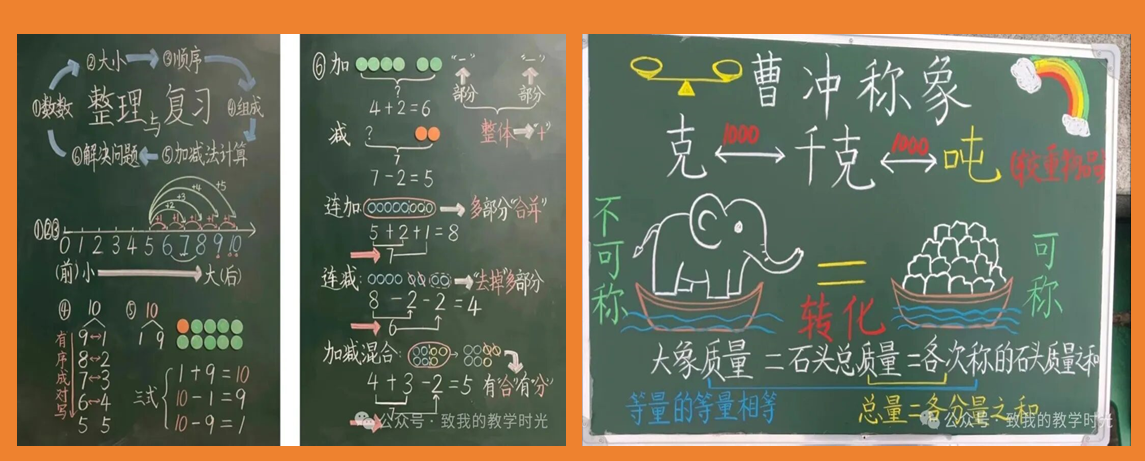 ②大小 ③顺序
①数数 整理与复习 ④组成
⑥解决问题 ⑤加减法计算
+5
+4
+3
+2
+1 +1 +1 +1 +1
①②③
0 1 2 3 4 5 6 7 8 9 10
(前)小 大(后)
④ 10
9↔1
8↔2
7↔3
6↔4
5 5
有序成对写
⑤ 10
1 9
三式
1+9=10
10-1=9
10-9=1
⑥加
?
4+2=6
“-” “-”
部分 部分
整体→“+”
减 ?
7
7-2=5
连加: 多部分“合并”
5+2+1=8
7
连减: “去掉”多部分
8-2-2=4
6
加减混合: 有“合”有“分”
4+3-2=5
7
公众号·致我的教学时光
曹冲称象
克 1000 千克 1000 吨
不可称
=
转化
可称
大象质量=石头总质量=各次称的石头质量之和
等量的等量相等
总量=各分量之和
公众号·致我的教学时光